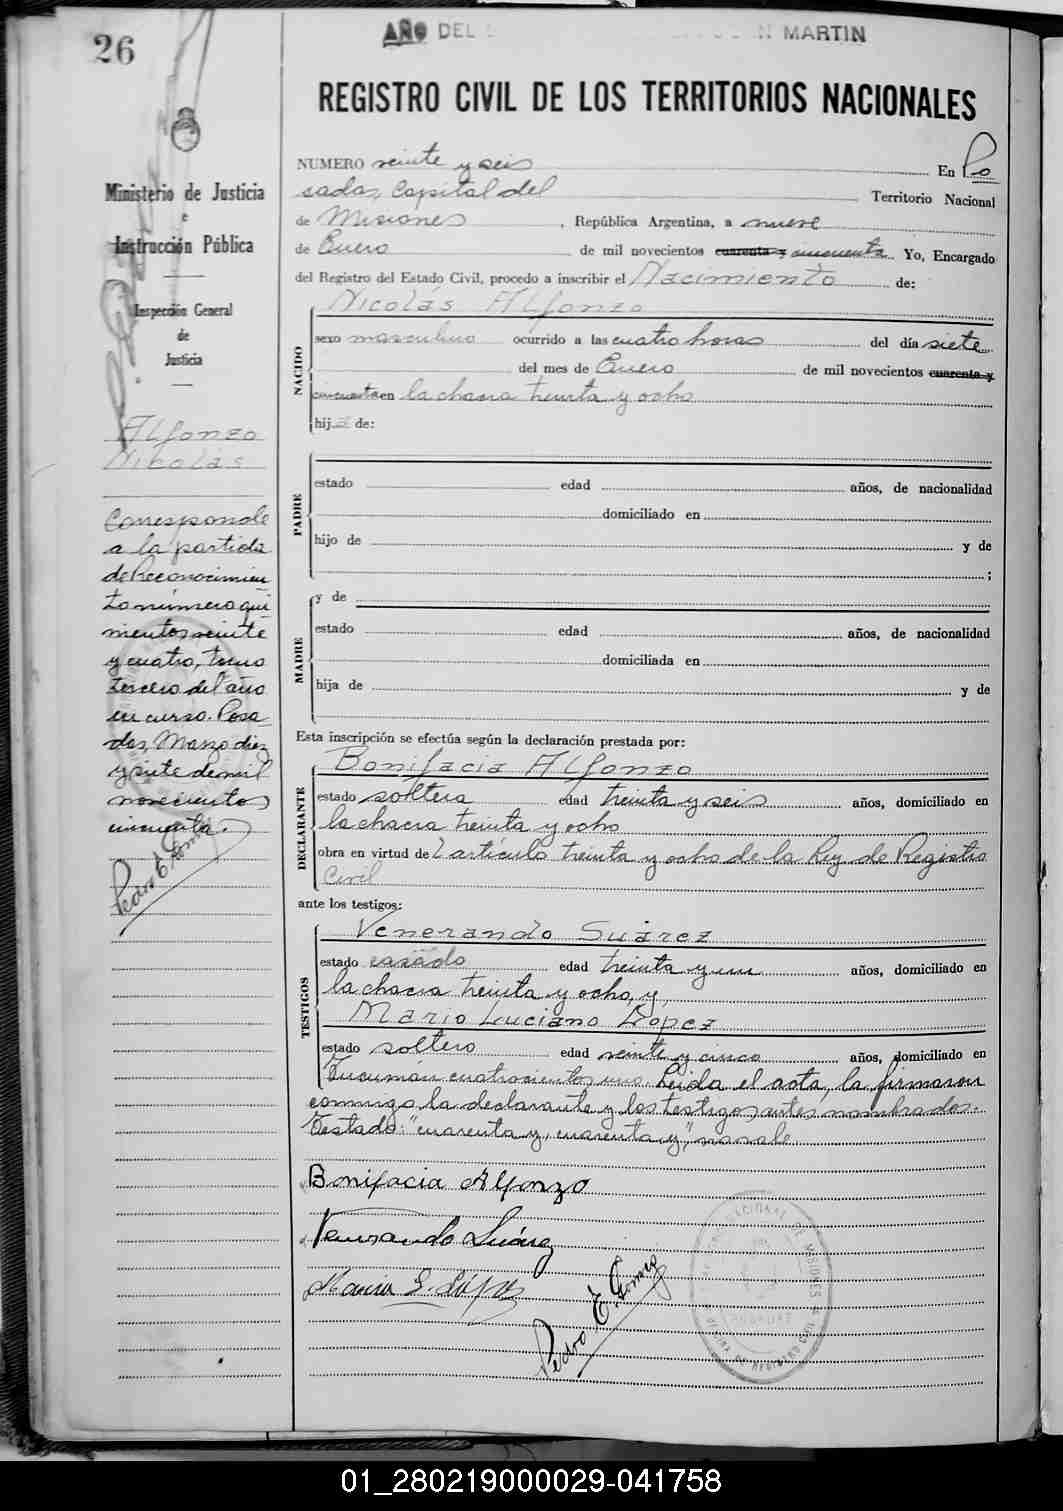 26
AÑO DEL MARTIN
REGISTRO CIVIL DE LOS TERRITORIOS NACIONALES
Ministerio de Justicia
e
Instrucción Pública
Inspección General
de
Justicia
Alfonzo
Nicolás
Corresponde
a la partida
de Reconocimien
to número qui
nientos veinte
y cuatro, tomo
tercero del año
en curso. Posa
das, Marzo diez
y siete de mil
novecientos
cincuenta.
Pedro E. Gomez
NUMERO veinte y seis En Po
sadas, Capital del Territorio Nacional
de Misiones, República Argentina, a nueve
de Enero de mil novecientos cuarenta y cincuenta Yo, Encargado
del Registro del Estado Civil, procedo a inscribir el Nacimiento de:
Nicolás Alfonzo
NACIDO
sexo masculino ocurrido a las cuatro horas del día siete
del mes de Enero de mil novecientos cuarenta y
cincuenta en la chacra treinta y ocho
hijo de:
PADRE
estado edad años, de nacionalidad
domiciliado en
hijo de y de
;
MADRE
y de
estado edad años, de nacionalidad
domiciliada en
hija de y de
Esta inscripción se efectúa según la declaración prestada por:
DECLARANTE
Bonifacia Alfonzo
estado soltera edad treinta y seis años, domiciliado en
la chacra treinta y ocho
obra en virtud del artículo treinta y ocho de la Ley de Registro
Civil
ante los testigos:
TESTIGOS
Venerando Suárez
estado casado edad treinta y un años, domiciliado en
la chacra treinta y ocho, y
Mario Luciano López
estado soltero edad veinte y cinco años, domiciliado en
Tucuman cuatrocientos uno Leida el acta, la firmaron
conmigo la declarante y los testigos antes nombrados.
Testado: "cuarenta y, cuarenta y", no vale
Bonifacia Alfonzo
Venerando Suárez
Mario L. López
Pedro E. Gomez
01_280219000029-041758